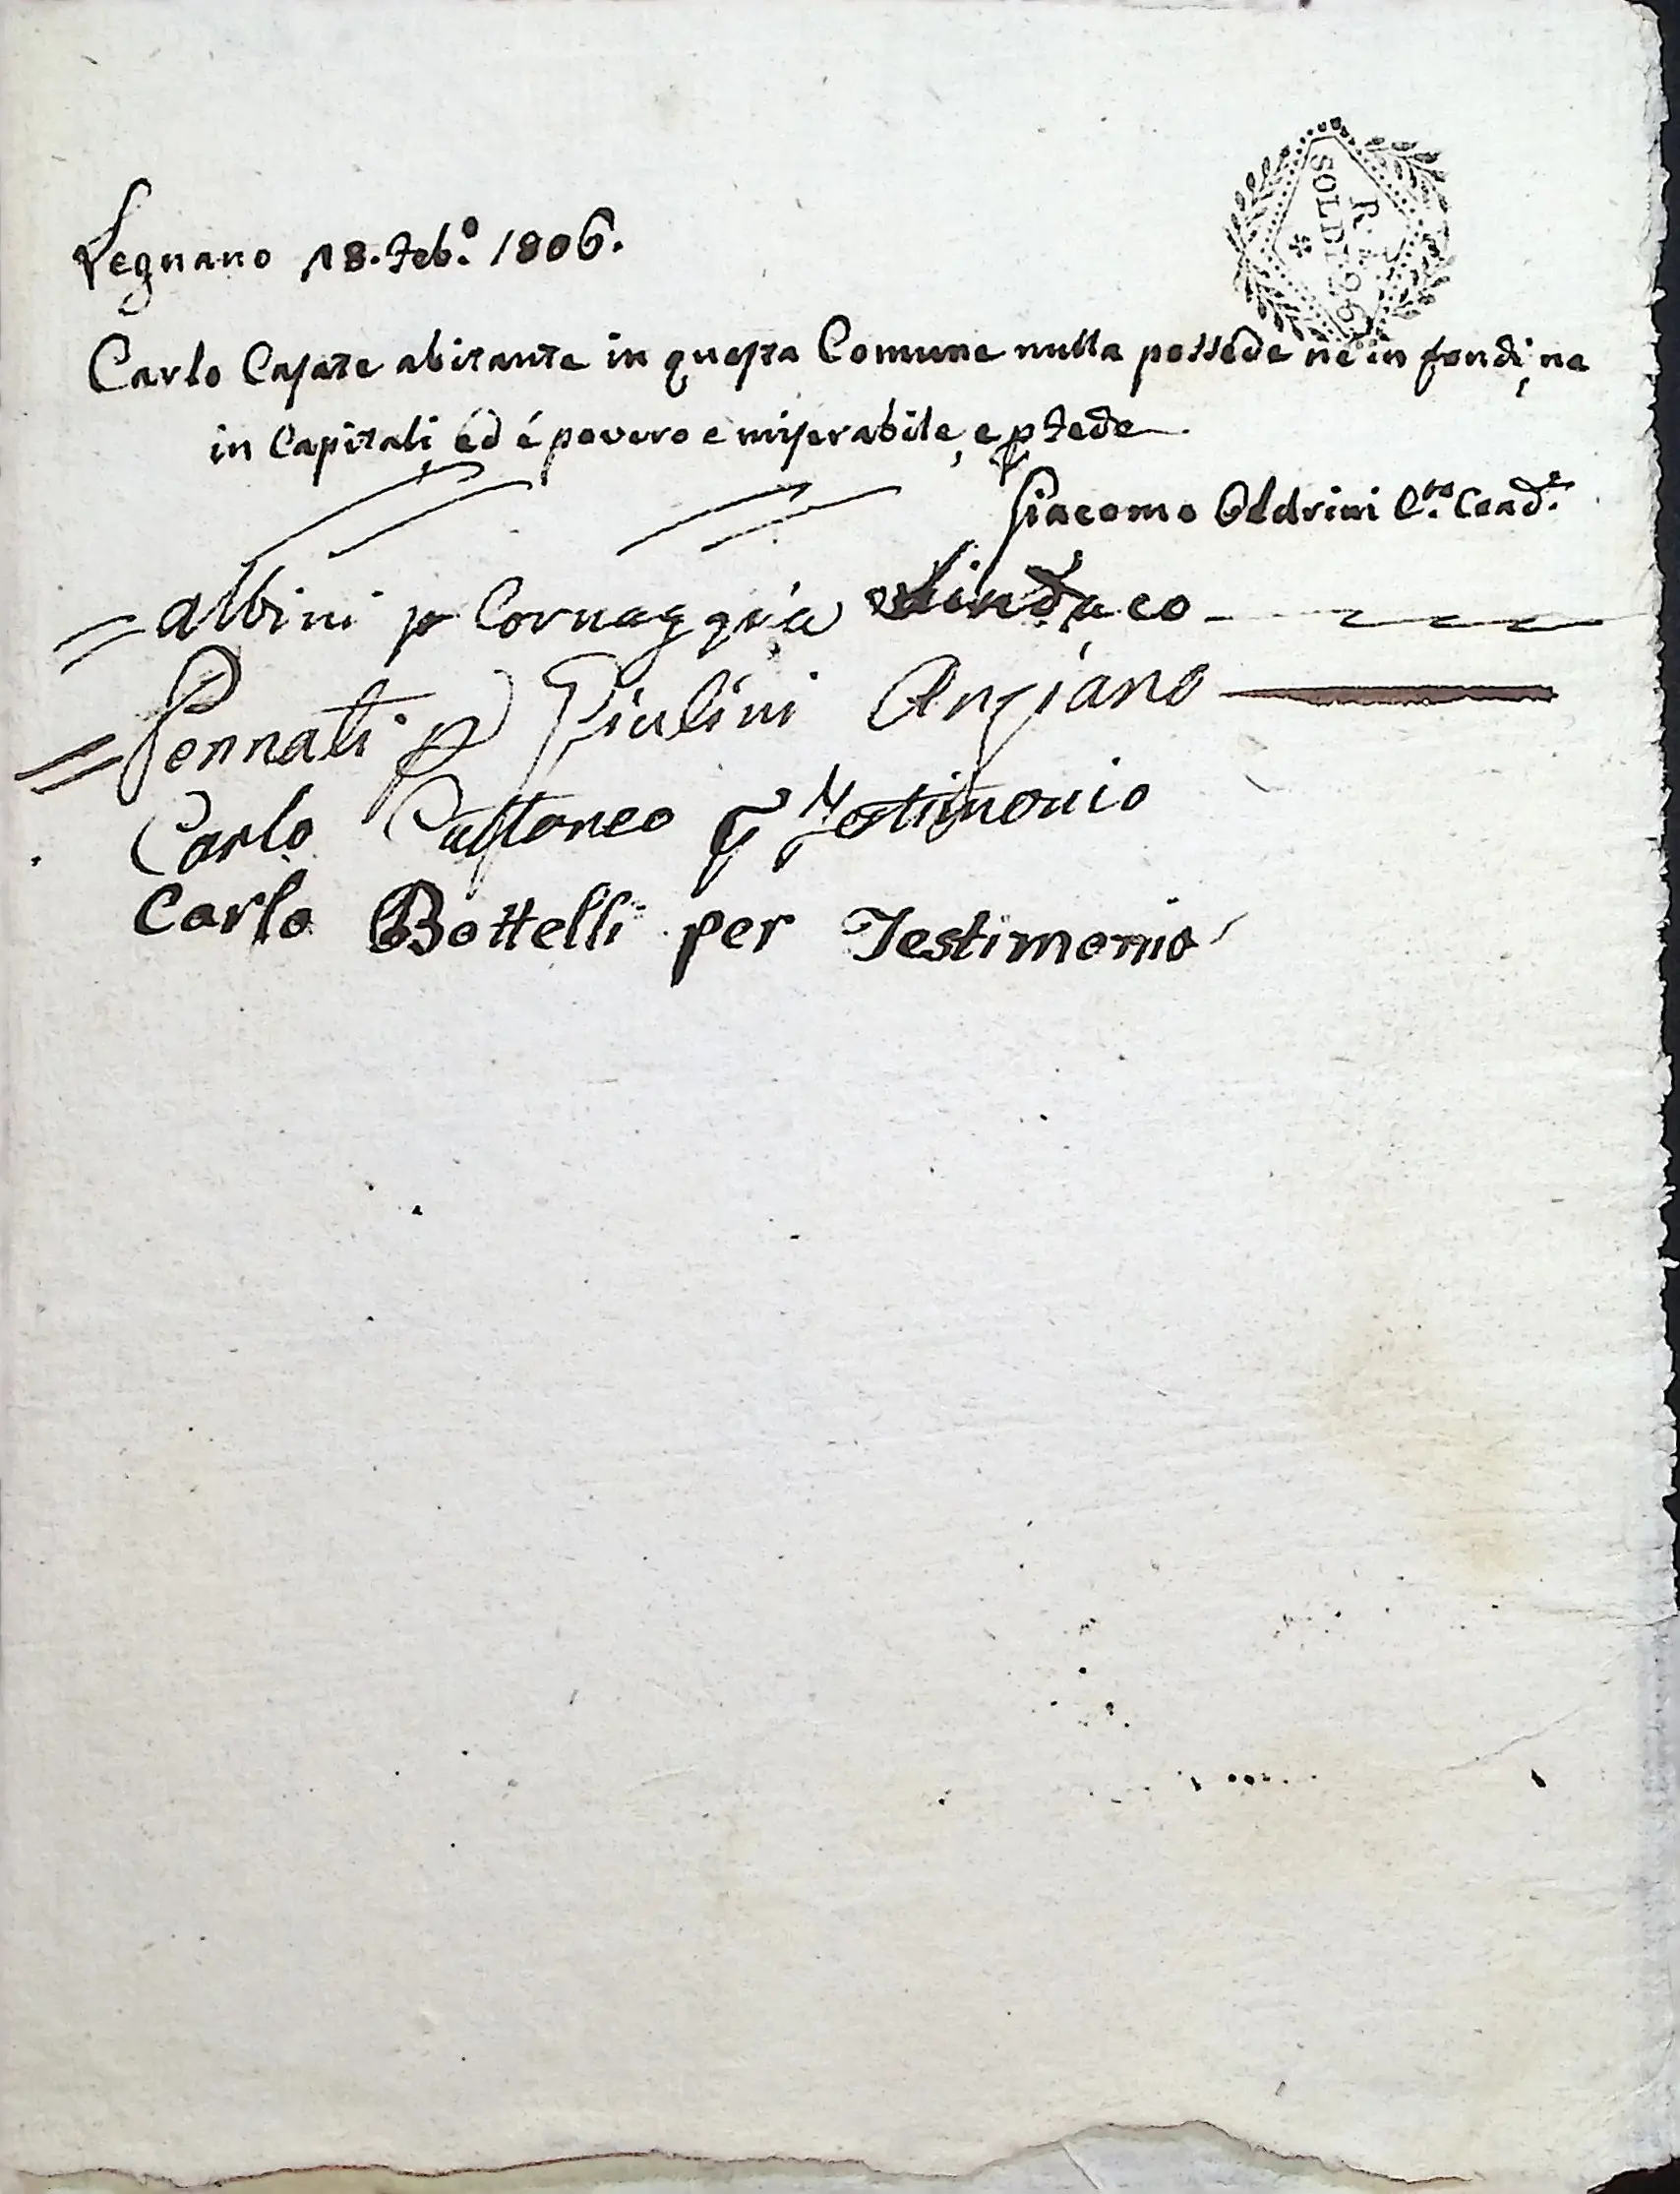 R. I.
SOLDI 96
Legnano 18. Feb.º 1806.
Carlo Casate abitante in questa Comune nulla possede nè in fondi, ne
in Capitali ed é povero e miserabile, e p fede
Giacomo Oldrini
Albini p Cornaggia Sindaco
Pennati p Giulini Anziano
Carlo Cattaneo p Testimonio
Carlo Bottelli per Testimonio